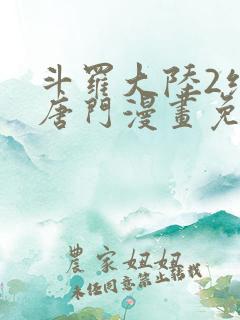 斗羅大陸2
唐門漫畫免
農家妞妞
未经同意禁止转载